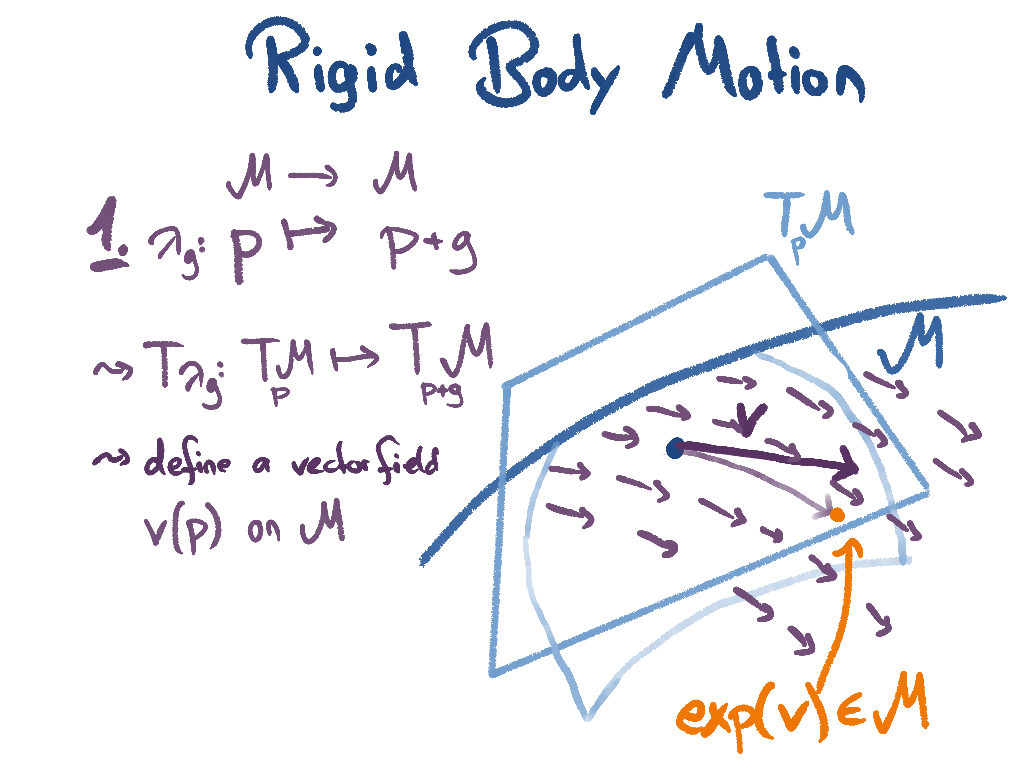 Rigid Body Motion
M → M
1. λg: p ↦ p+g
⇝ Tλg: TpM ↦ Tp+gM
⇝ define a vectorfield
v(p) on M
TpM
M
v
exp(v) ∈ M